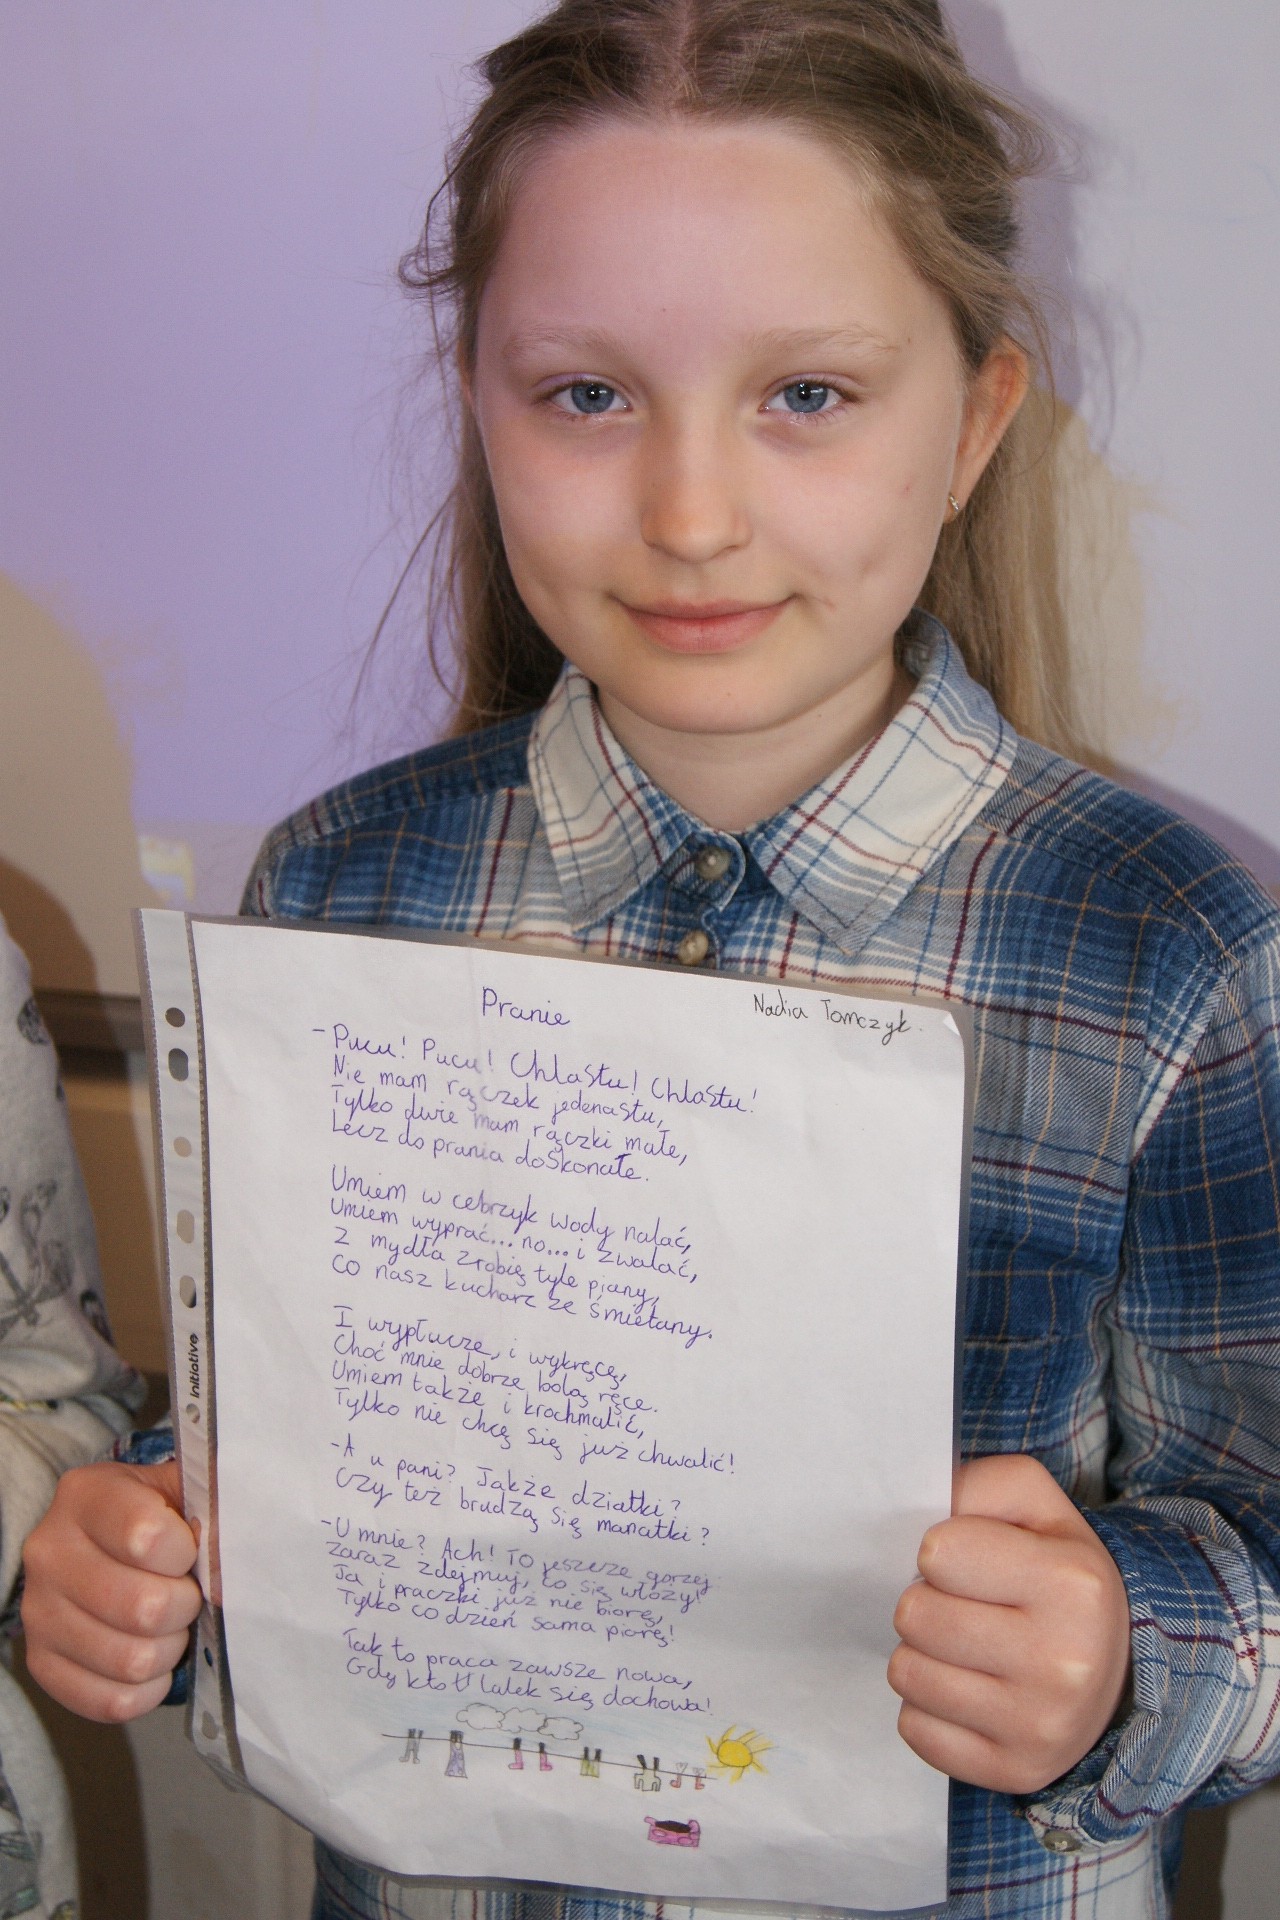 Pranie
Nadia Tomczyk.
- Pucu! Pucu! Chlastu! Chlastu!
Nie mam rączek jedenastu,
Tylko dwie mam rączki małe,
Lecz do prania doskonałe.
Umiem w cebrzyk wody nalać,
Umiem wyprać... no... i zwalać,
Z mydła zrobię tyle piany,
Co nasz kucharz ze śmietany.
I wypłucze, i wykręcę,
Choć mnie dobrze bolą ręce.
Umiem także i krochmalić,
Tylko nie chcę się już chwalić!
- A u pani? Jakże dziatki?
Czy też brudzą się manatki?
- U mnie? Ach! To jeszcze gorzej
Zaraz zdejmuj, co się włoży!
Ja i praczki już nie biorę,
Tylko co dzień sama piorę!
Tak to praca zawsze nowa,
Gdy kto lalek się dochowa!
initiative